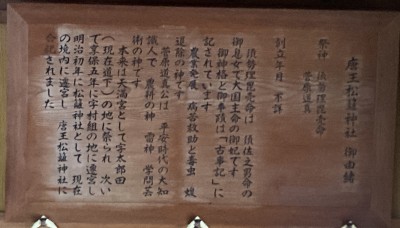 唐王松籬神社 御由緒
祭神 須勢理毘売命
菅原道真
創立年月 不詳
須勢理毘売命は 須佐之男命の
御息女で大国主命の御妃です
御神格と御事蹟は「古事記」に
記されています
農業発展 病苦救助と毒虫 蝮
退除の神です
菅原道真公は 平安時代の大知
識人で 農耕の神 雷神 学問芸
術の神です
本来は天満宮として字太郎田
(現在道下)の地に祭られ 次い
で享保五年に字村組の地に遷宮し
明治初年に松籬神社として 現在
の境内に遷宮し 唐王松籬神社に
合祀されました